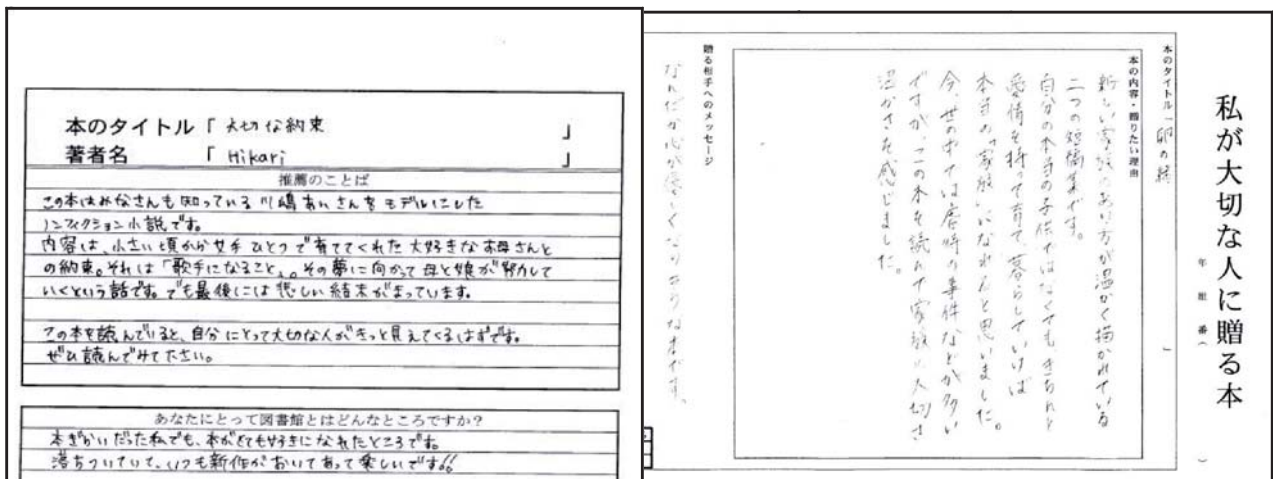 本のタイトル「大切な約束」
著者名 「Hikari」
推薦のことば
この本はみなさんも知っている川嶋あいさんをモデルにした
ノンフィクション小説です。
内容は、小さい頃から女手ひとつで育ててくれた大好きなお母さんと
の約束。それは「歌手になること」。その夢に向かって母と娘が努力して
いくという話です。でも最後には悲しい結末がまっています。
この本を読んでいると、自分にとって大切な人がきっと見えてくるはずです。
ぜひ読んでみて下さい。
あなたにとって図書館とはどんなところですか?
本ぎらいだった私でも、本がとても好きになれたところです。
落ちついていて、いつも新作がおいてあって楽しいです!!
私が大切な人に贈る本
年 組 番( )
本のタイトル「卵の緒」
本の内容・贈りたい理由
新しい家族のあり方が温かく描かれている
二つの短編集です。
自分の本当の子供ではなくてもきちんと
愛情を持って育て、暮らしていけば
本当の「家族」になれると思いました。
今、世の中では虐待の事件などが多い
ですが、この本を読んで家族の大切さ
温かさを感じました。
贈る相手へのメッセージ
なんだか心が優しくなりそうな本です。